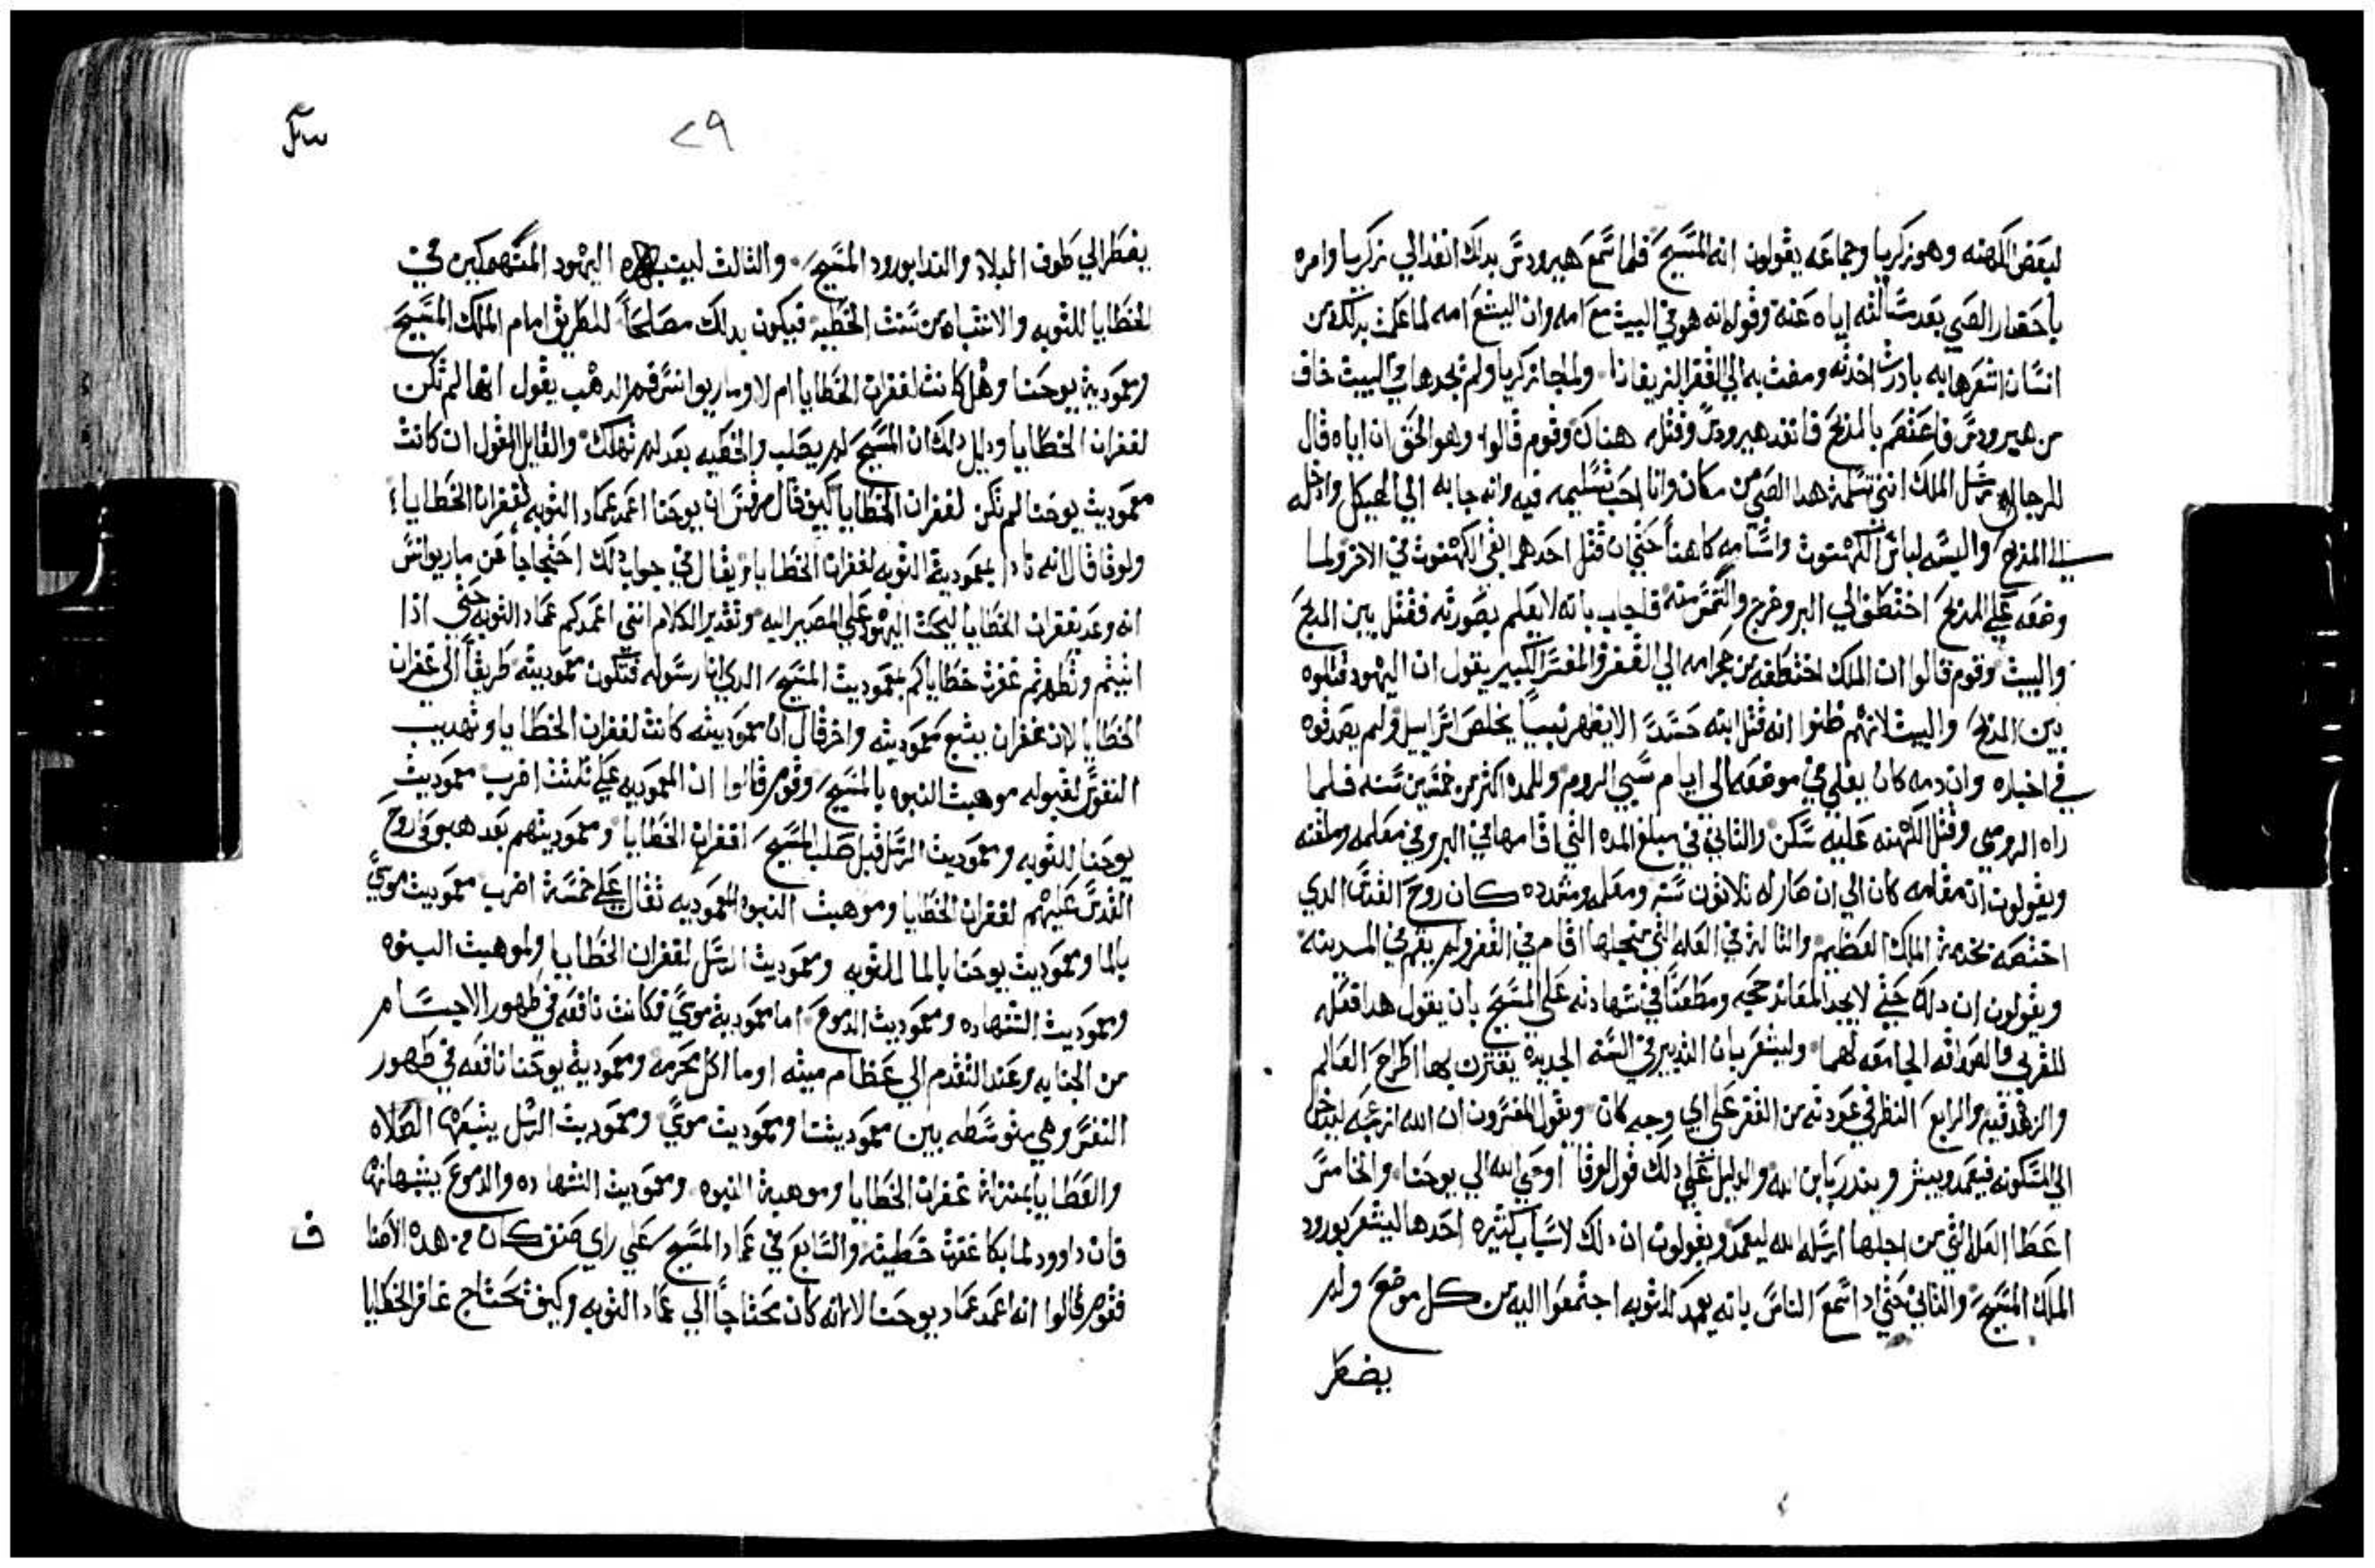 لبعض الكهنه وهو زكريا وجماعه يقولون انه المسيح فلما سمع هيرودس بدلك انفد الي زكريا وامره
باحضار الصبي بعد مسألته اياه عنه وقوله انه هو في البيت مع امه وان اليشع امه لما علمت بدلك من
انسان اشعرها به بادرت اخدته ومضت به الي القفر الزيفانا ولما جا زكريا ولم يجدها في البيت خاف
من هيرودس فاعتصم بالمدبح فانفد هيرودس وقتله هناك وقوم قالوا وهو الحق ان اياه قال
للرجال رسل الملك انني تسلمت هدا الصبي من مكان وانا احب تسليمه فيه وانه جا به الي الهيكل وادخله
الي المدبح والبسه لباس الكهنوت واسامه كاهناً حتي ان قتل احدهما بقي الكهنوت في الاخر ولما
وضعه علي المدبح اختطف الي البر وخرج والتمس منه فاجاب بانه لا يعلم بصورته فقتل بين المدبح
والبيت وقوم قالوا ان الملك اختطفه من حجر امه الي القفر والمفسر الكبير يقول ان اليهود قتلوه
بين المدبح والبيت لانهم ظنوا انه قتل ابنه حسداً الا يظهر نبياً يخلص اسراييل ولم يصدقوه
في اخباره وان دمه كان يغلي في موضعه الي ايام سبي الروم وللمده اكثر من خمسين سنه فلما
راه الرومي وقتل الكهنه عليه سكن والثاني في مبلغ المده التي اقامها في البر وفي معلمه وملقنه
ويقولون ان مقامه كان الي ان صار له ثلاثون سنه ومعلمه ومشدده كان روح القدس الدي
اختصه بخدمة الملك العظيم والثالث في العله التي من اجلها اقام في القفر ولم يقم في المدينه
ويقولون ان دلك حتي لا يجد المعاند حجه ومطعناً في شهادته علي المسيح بان يقول هدا فعله
للقربي والصداقه الجامعه لهما وليشعر بان التدبير في السنه الجديدة يقترن بها اطراح العالم
والزهد فيه والرابع النظر في عودته من القفر علي اي وجه كان ويقول المفسرون ان الله ازعجه ليدخل
الي المسكونه فيعمد ويبشر ويندر بابن الله والدليل علي دلك قول لوقا اوحي الله الي يوحنا والخامس
اعطا العله التي من اجلها ارسله الله ليعمد ويقولون ان دلك لاسباب كثيره احدها ليشعر بورود
الملك المسيح والثاني حتي ادا سمع الناس بانه يعمد للتوبه اجتمعوا اليه من كل موضع ولم
يضطر
٢٩
يضطر الي طوف البلاد والندا بورود المسيح والثالث ليتب اليهود المنهمكين في
الخطايا للتوبه والانتباه من سنت الخطيه فيكون بدلك مصلحاً للطريق امام الملك المسيح
ومعمودية يوحنا وهل كانت لغفران الخطايا ام لا وماريوانس فم الدهب يقول انها لم تكن
لغفران الخطايا ودليل دلك ان المسيح لم يصلب والخطيه بعد لم تهلك والقايل القول ان كانت
معموديت يوحنا لم تكن لغفران الخطايا كيف قال مرقس ان يوحنا اعمد عماد التوبه لغفران الخطايا
ولوقا قال انه نادا بمعمودية التوبه لغفران الخطايا ويقال في جواب دلك احتجاجاً عن ماريوانس
انه وعد بغفران الخطايا ليحث اليهود علي المصير اليه وتقدير الكلام انني اعمدكم عماد التوبه حتي ادا
انبتم وتطهرتم غفرت خطاياكم بمعموديت المسيح الدي انا رسوله فتكون معموديته طريقاً الي غفران
الخطايا لان غفران يتبع معموديته واخر قال ان معموديته كانت لغفران الخطايا وتهديب
النفوس لقبوله موهبت البنوه بالمسيح وقوم قالوا ان المعموديه علي ثلثت اضرب معموديت
يوحنا للتوبه ومعموديت الرسل قبل صلب المسيح لغفران الخطايا ومعموديتهم بعد هبوط روح
القدس عليهم لغفران الخطايا وموهبت البنوه المعموديه تقال علي خمسة اضرب معموديت موسي
بالما ومعموديت يوحنا بالما للتوبه ومعموديت الرسل لغفران الخطايا ولموهبت البنوه
ومعموديت الشهاده ومعموديت الدموع اما معمودية موسي فكانت نافعه في طهور الاجسام
من الجنابه وعند التقدم الي عظام ميته او ما اكل محرمه ومعمودية يوحنا نافعه في طهور
النفس وهي متوسطه بين معموديتنا ومعموديت موسي ومعموديت الرسل يتبعها الصلاه
والعطايا بمنزلة غفران الخطايا وموهبة البنوه ومعموديت الشهاده والدموع يشبهانها
فان داوود لما بكا غفرت خطيته والسابع في عماد المسيح علي راي صنف كان من هده الاصنا
ف
فقوم قالوا انه اعمد عماد يوحنا لا لانه كان محتاجاً الي عماد التوبه وكيف يحتاج غافر الخطايا